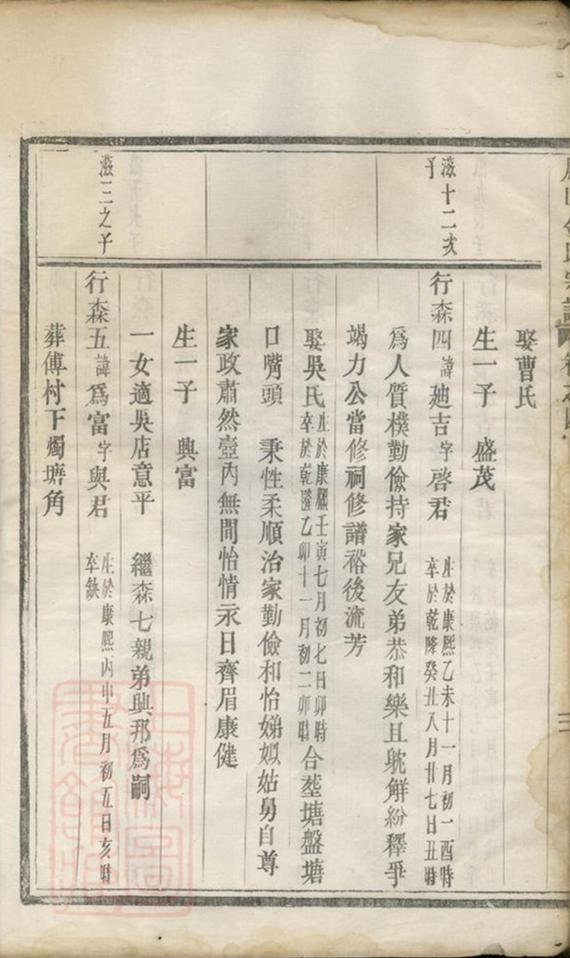 娶曹氏
生一子 盛茂
滋十二次子
行森四 諱廸吉 字啓君 生於康熙乙未十一月初一酉時 卒於乾隆癸丑八月廿七日丑時
為人質樸勤儉持家兄友弟恭和樂且躭觧紛釋爭
竭力公當修祠修譜裕後流芳
娶吳氏 生於康熙壬寅七月初七日卯時 卒於乾隆乙卯十一月初二卯時 合塟塘盤塘
口嘴頭 秉性柔順治家勤儉和怡娣姒姑舅自尊
家政肅然壼內無間怡情永日齊眉康健
生一子 興富
一女適吳店意平 繼森七親弟興邦為嗣
滋三之子
行森五 諱為富 字與君 生於康熙丙申五月初五日亥時 卒缺
葬傅村下燭塘角